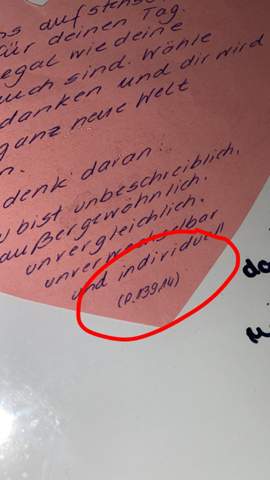 auf stehs
für deinen Tag.
egal wie deine
auch sind. Wähle
danken und dir wird
ganz neue Welt
n.
denk daran:
u bist unbeschreiblich,
außergewöhnlich,
unvergleichlich,
unverwechselbar
und individuell
(P.139,14)
da